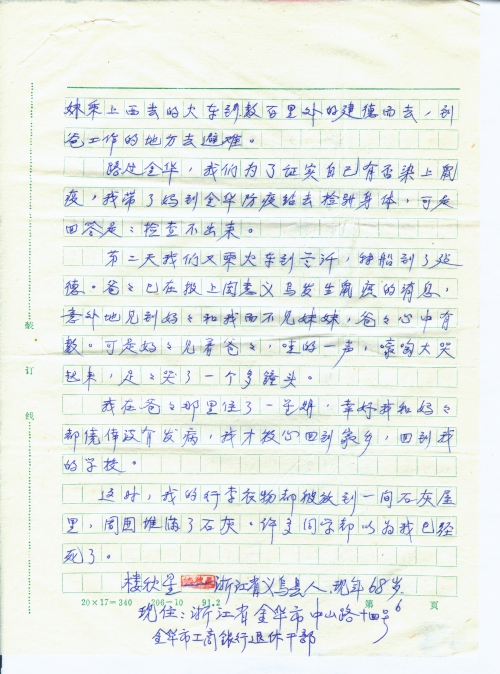 妹乘上西去的火车到数百里外的建德而去，到
爸工作的地方去避难。
路过金华，我们为了证实自己有否染上鼠
疫，我带了妈到金华防疫站去检验身体，可是
回答是：检查不出来。
第二天我们又乘火车到兰溪，转船到了建
德。爸々已在报上闻悉义乌发生鼠疫的消息，
意外地见到妈々和我而不见妹妹，爸々心中有
数。可是妈々见看爸々，哇的一声，嚎啕大哭
起来，足々哭了一个多钟头。
我在爸々那里住了一学期，幸好我和妈々
都侥倖没有发病，我才放心回到家乡，回到我
的学校。
这时，我的行李衣物都被放到一间石灰屋
里，周围堆满了石灰。许多同学都以为我已经
死了。
楼欣星 浙江省义乌县人 现年68岁
20×17=340 206—10 91.2 第 页
现住：浙江省金华市中山路十四号6
金华市工商银行退休干部
装
订
线